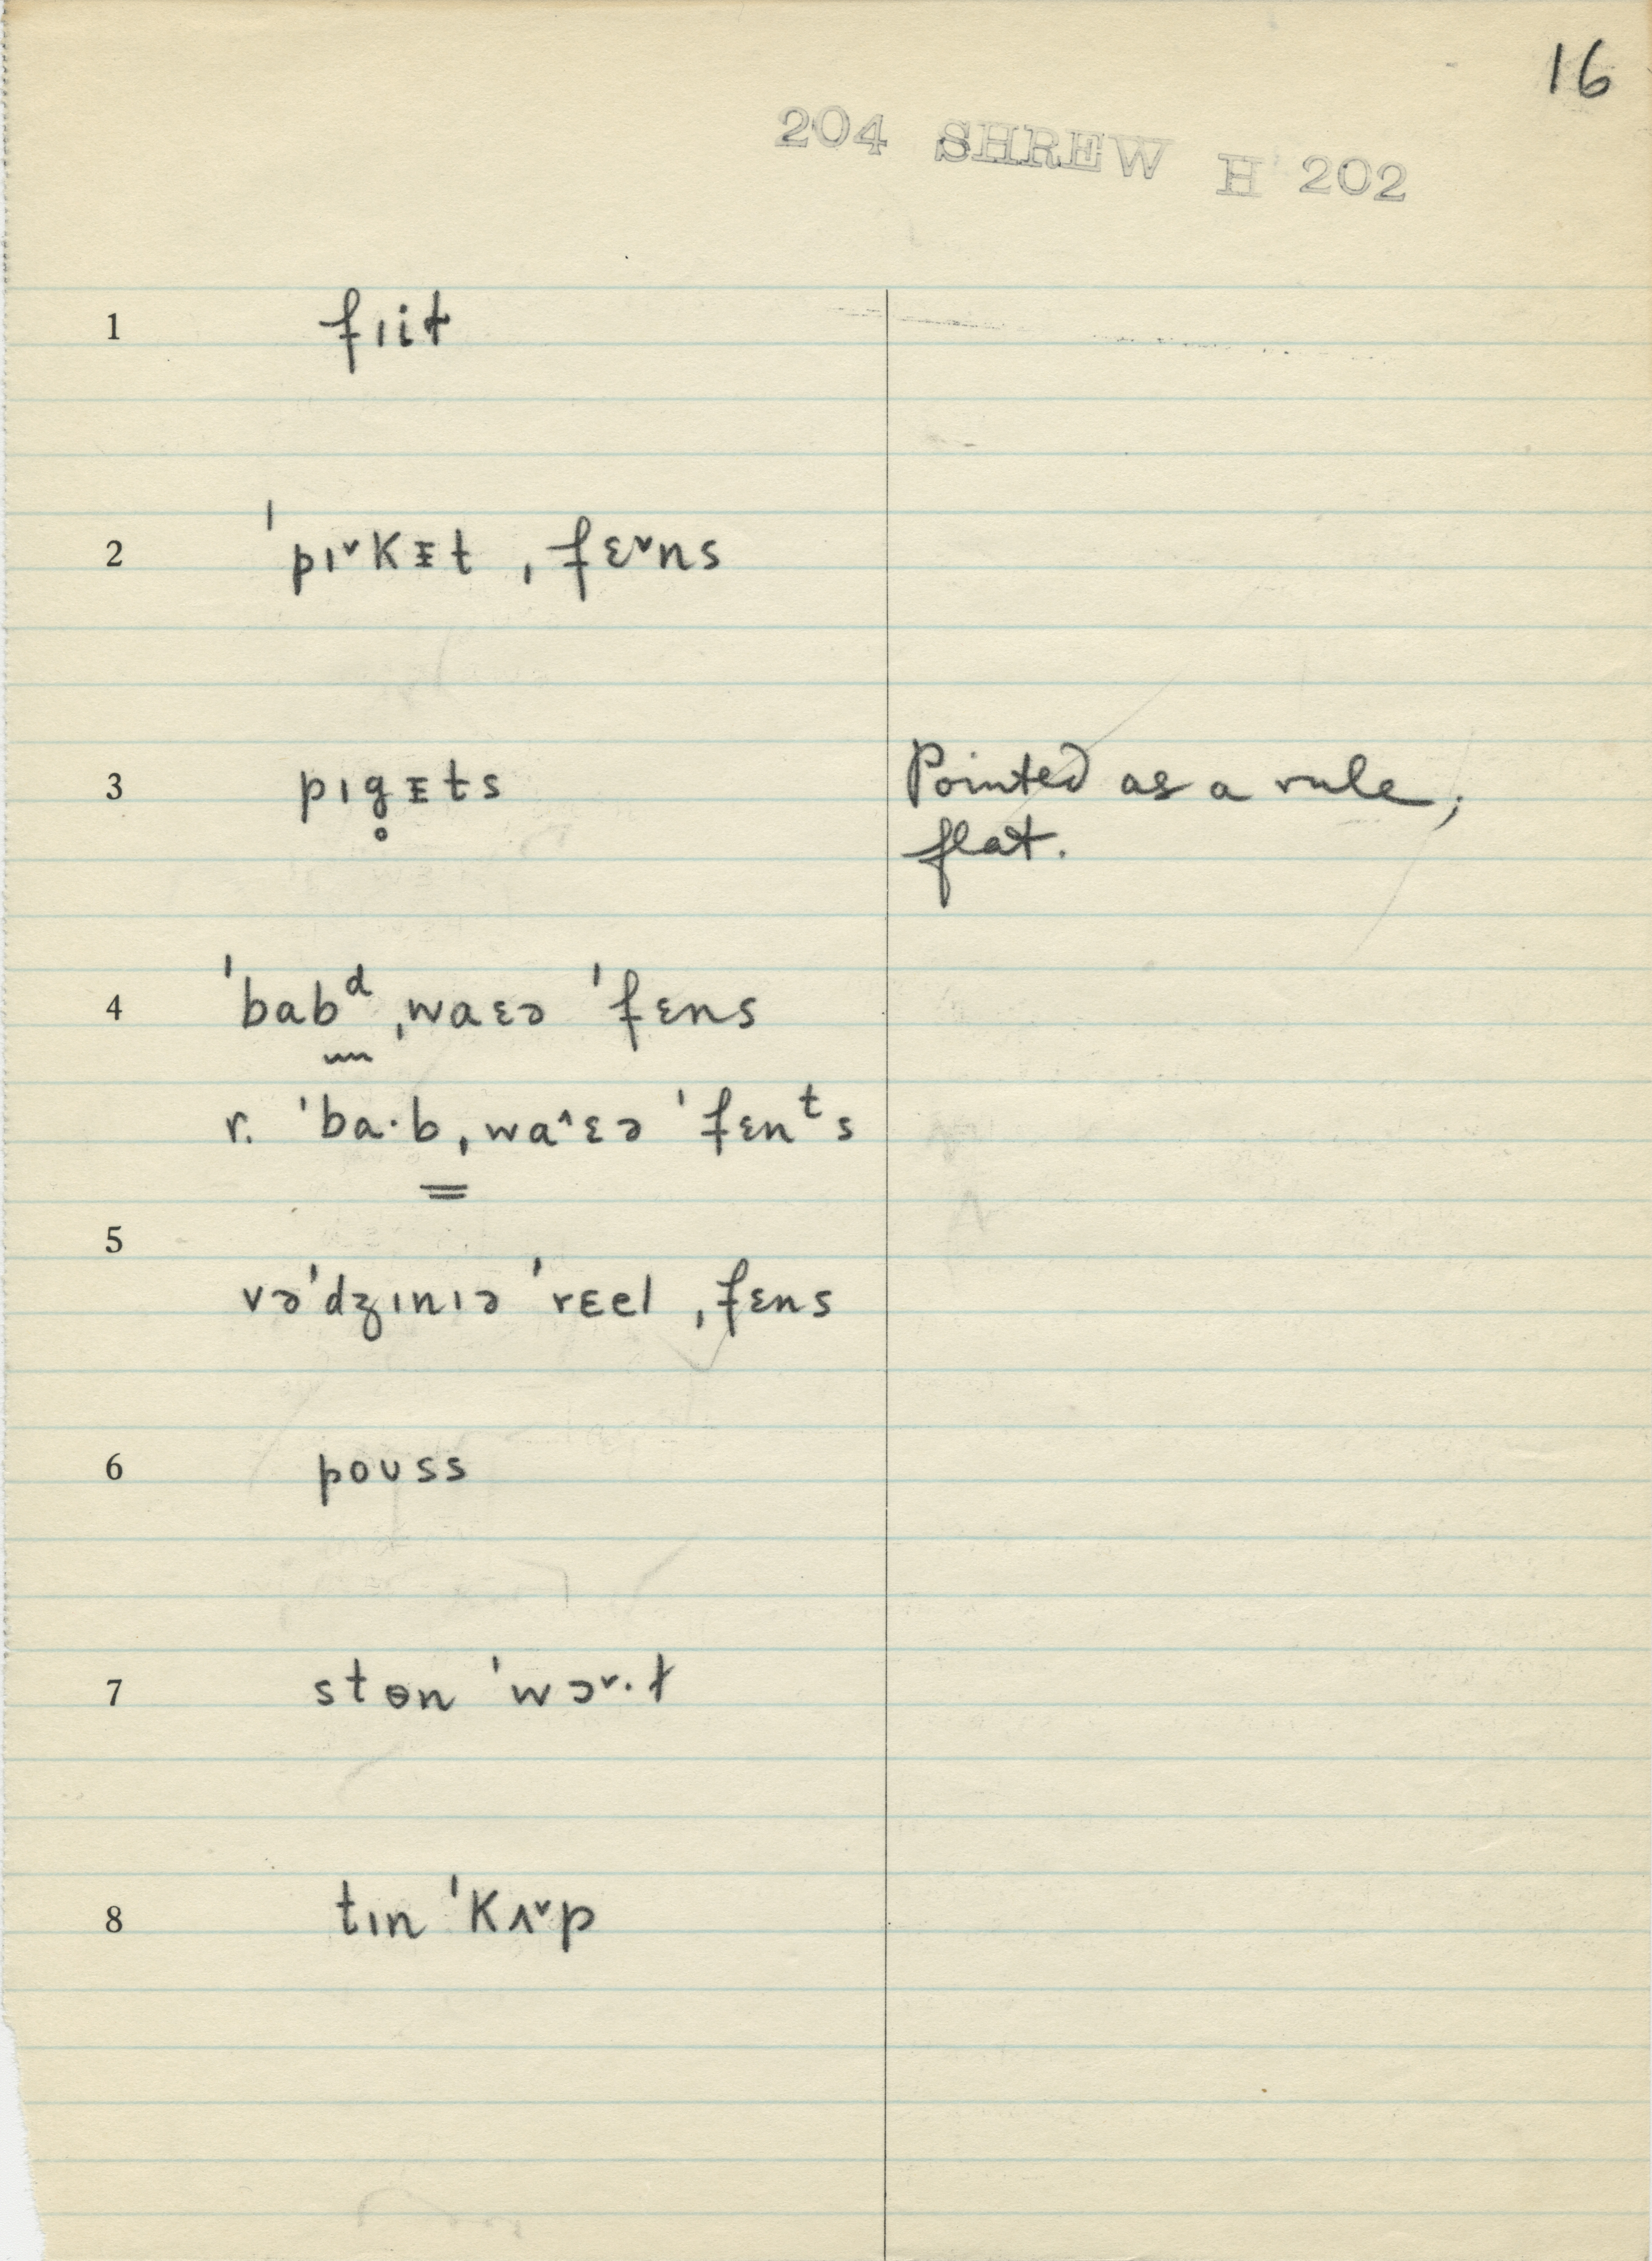 16
204 SHREW H 202
1 fɪit
2 ˈpɪ˅kᵻt ˌfɛ˅ns
3 pɪg̥ᵻts Pointed as a rule,
flat.
4 ˈbabᵈ ˌwaɛə ˈfɛns
r. ˈba·b ˌwa˄ɛə ˈfɛnᵗs
5
vəˈdʒɪnɪə ˈrɛel ˌfɛns
6 poʊss
7 stɵn ˈwɔ˅·ɫ
8 tɪn ˈkʌ˅p